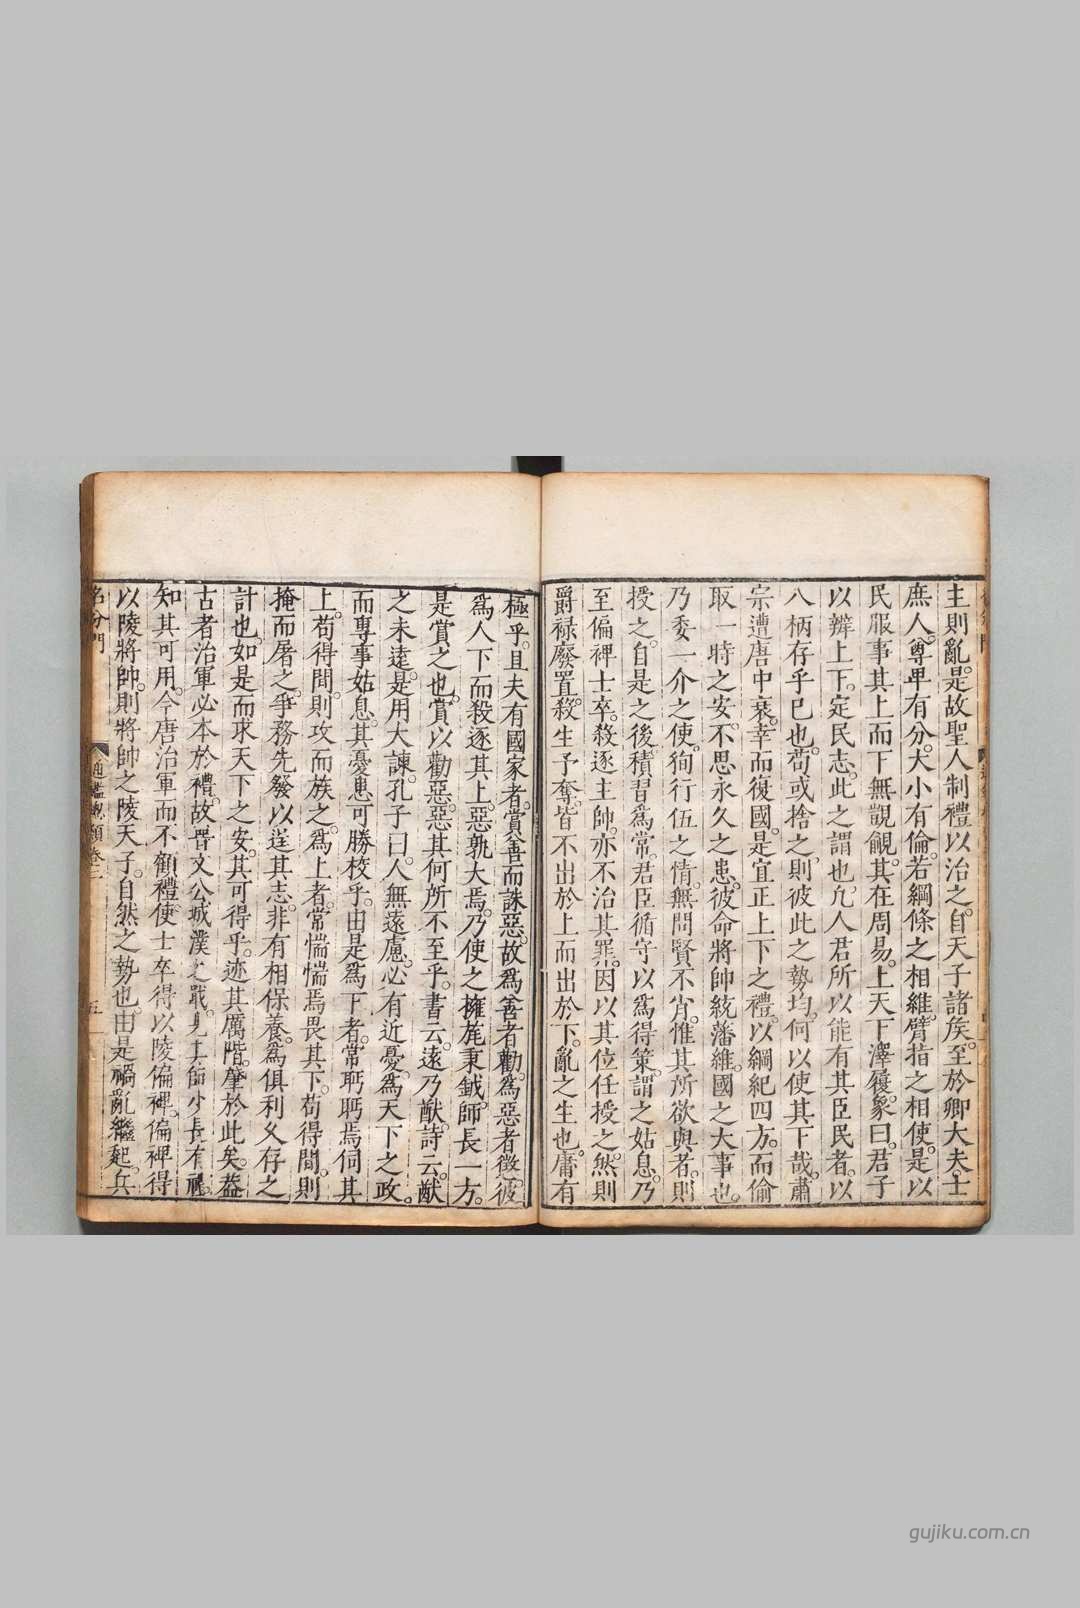 主則亂。是故聖人制禮以治之。自天子諸矦。至於卿大夫。士
庶人。尊甲有分。大小有倫。若綱條之相維。臂指之相使。是以
民服事其上而下無覬覦。其在周易。上天下澤履。象曰。君子
以辨上下。定民志。此之謂也。凢人君所以能有其臣民者。以
八柄存乎已也。苟或捨之。則彼此之勢均。何以使其下哉。肅
宗遭唐中衰。幸而復國。是宜正上下之禮。以綱紀四方。而偷
取一時之安。不思永久之患。彼命將帥統藩維。國之大事也。
乃委一介之使。徇行伍之情。無問賢不肖。惟其所欲與者。則
授之。自是之後。積習爲常。君臣循守。以爲得策。謂之姑息。乃
至偏裨士卒。殺逐主帥。亦不治其罪。因以其位任授之。然則
爵祿廢置。殺生予奪。皆不出於上而出於下。亂之生也。庸有
極乎。且夫有國家者。賞善而誅惡。故爲善者勸。爲惡者懲。彼
爲人下而殺逐其上。惡孰大焉。乃使之擁旄秉鉞。師長一方。
是賞之也。賞以勸惡。惡其何所不至乎。書云。遠乃猷。詩云。猷
之未遠。是用大諫。孔子曰。人無遠慮。必有近憂。爲天下之政。
而專事姑息。其憂患可勝校乎。由是爲下者。常眄眄焉伺其
上。苟得間。則攻而族之。爲上者。常惴惴焉畏其下。苟得間。則
掩而屠之。爭務先發以逞其志。非有相保養。爲俱利久存之
計也。如是而求天下之安。其可得乎。迹其厲階。肇於此矣。葢
古者治軍必本於禮。故晉文公城濮之戰。見其師少長有禮。
知其可用。今唐治軍而不顧禮。使士卒得以陵偏裨。偏裨得
以陵將帥。則將帥之陵天子。自然之勢也。由是禍亂繼起。兵
名分門
通鑑總類卷三
五
gujiku.com.cn